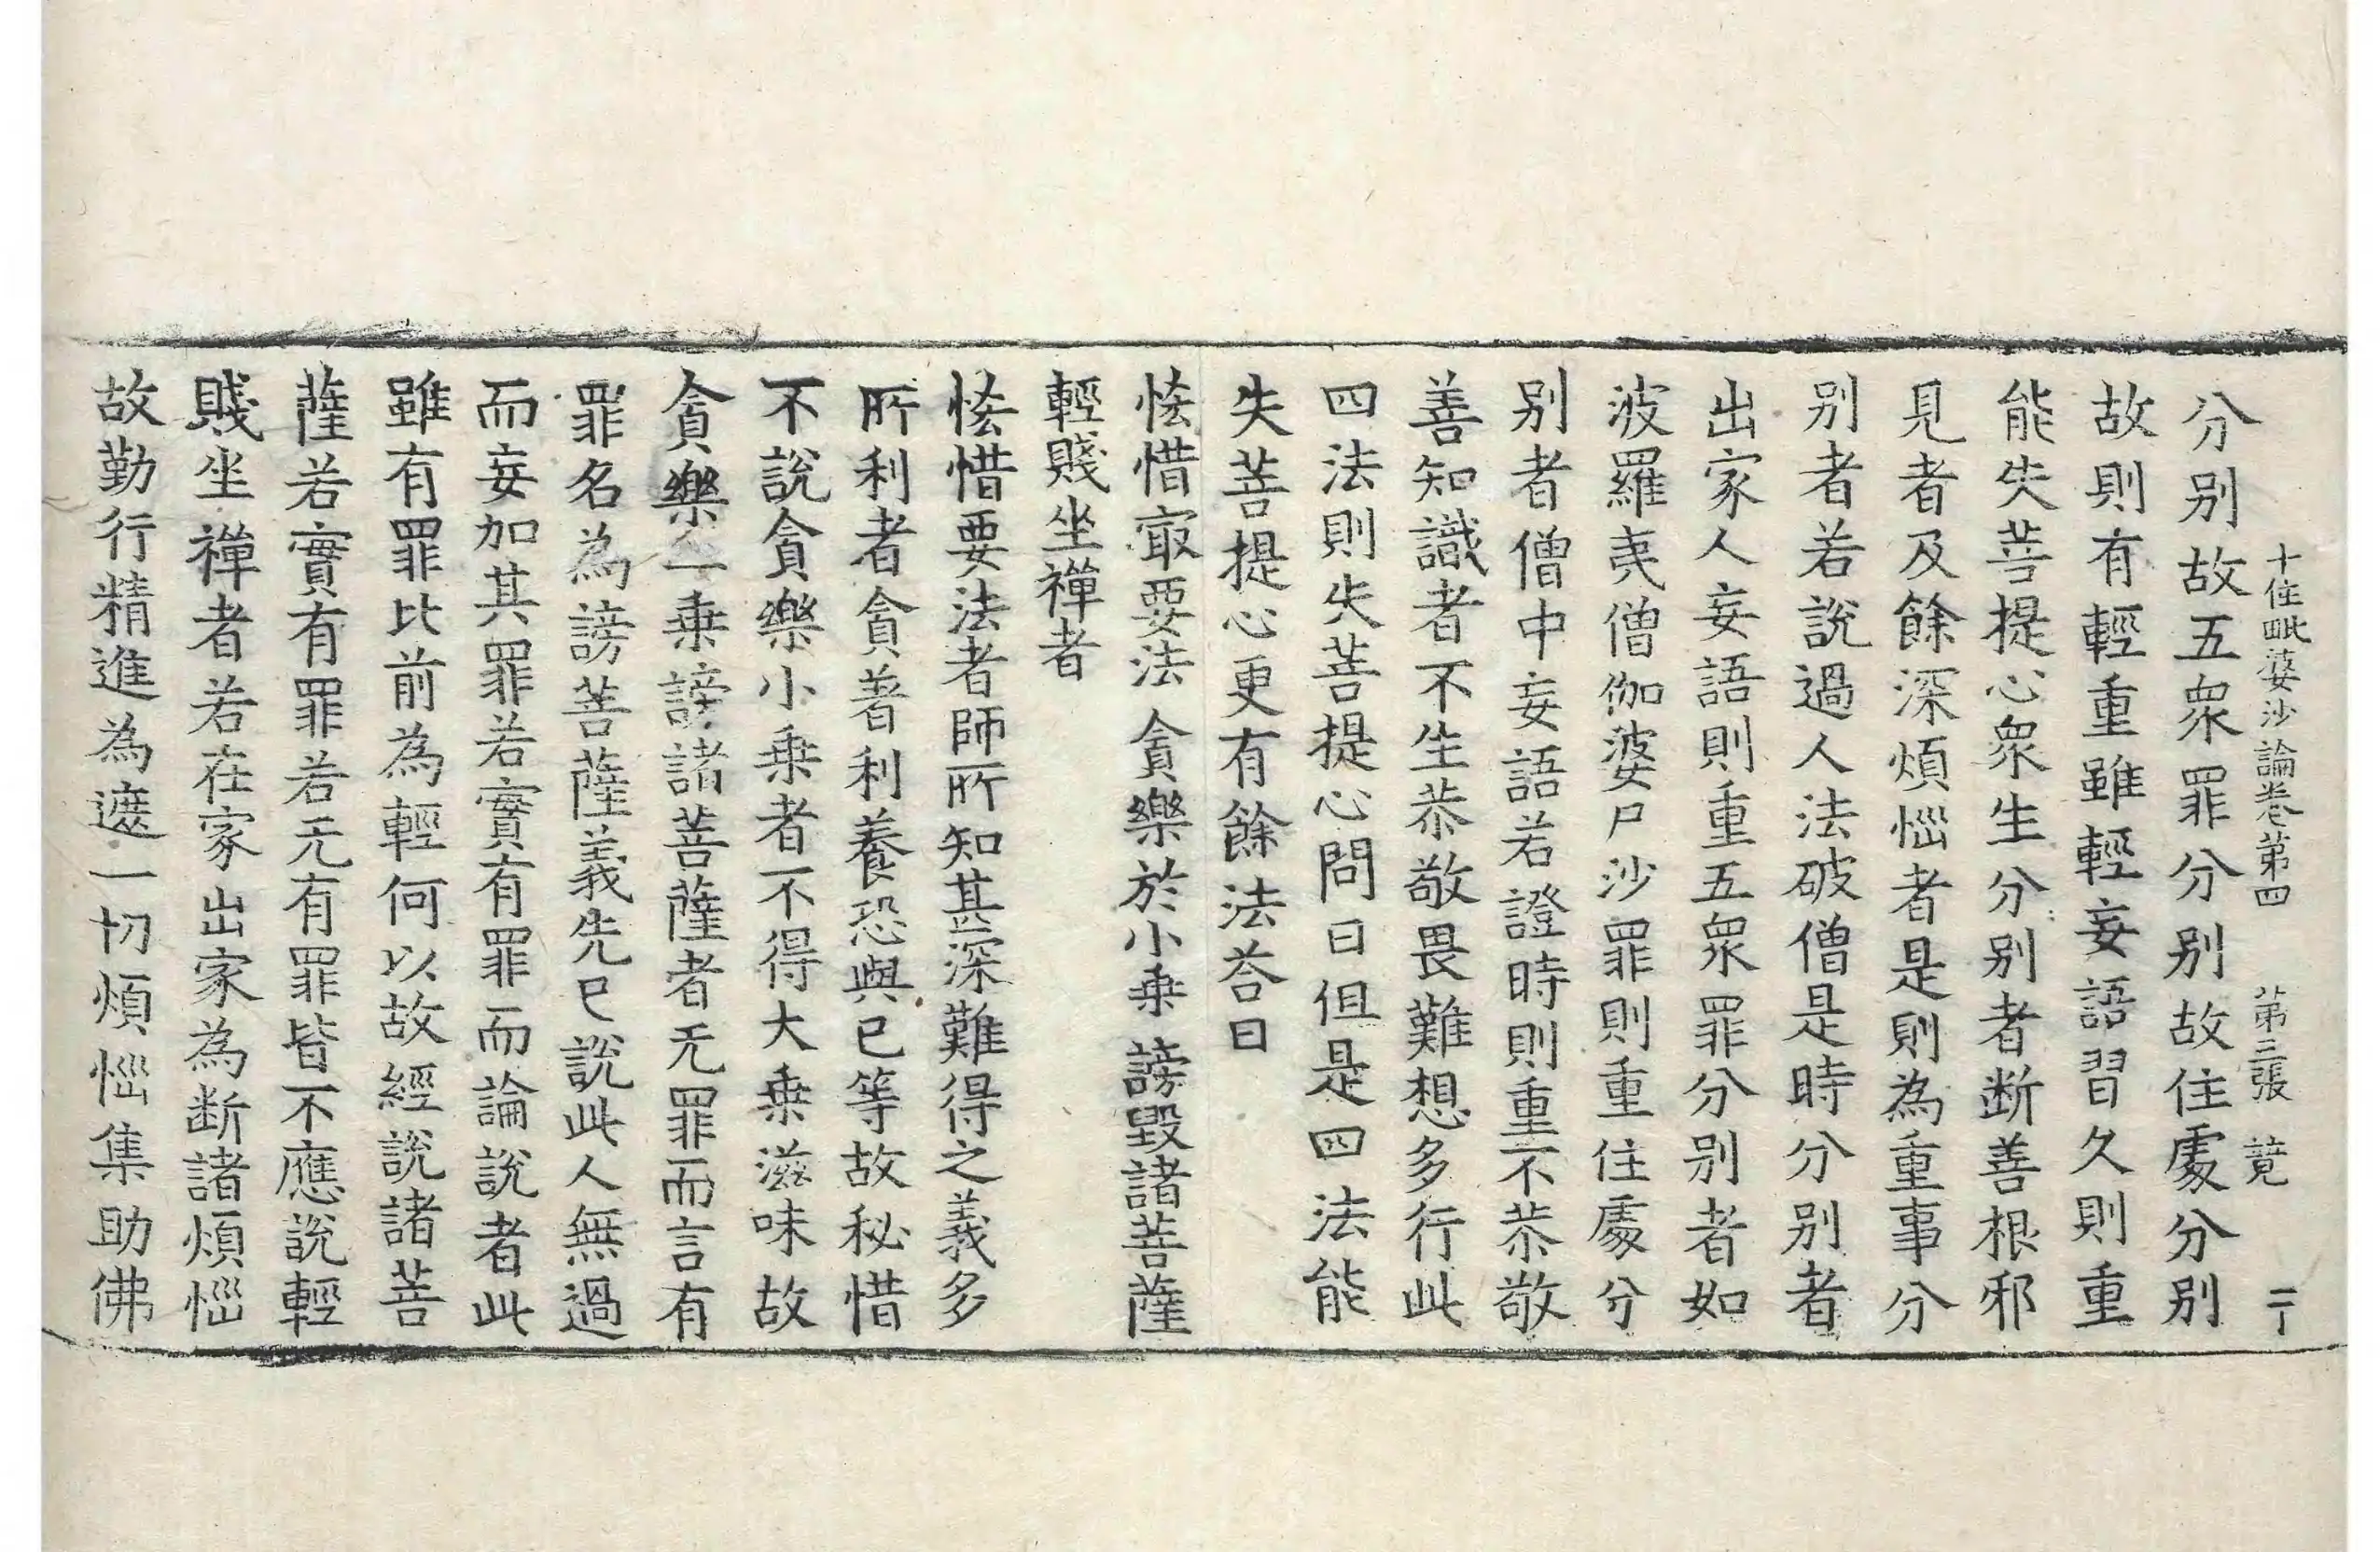 十住毗婆沙論卷第四　第三張　竟
分别故五衆罪分别故住處分别
故則有輕重雖輕妄語習久則重
能失菩提心衆生分别者断善根邪
見者及餘深煩惱者是則為重事分
别者若說過人法破僧是時分别者
出家人妄語則重五衆罪分别者如
波羅夷僧伽婆尸沙罪則重住處分
别者僧中妄語若證時則重不恭敬
善知識者不生恭敬畏難想多行此
四法則失菩提心問曰但是四法能
失菩提心更有餘法荅曰
悋惜㝡要法　貪樂於小乗　謗毀諸菩薩
輕賤坐禪者
悋惜要法者師所知甚深難得之義多
所利者貪著利養恐與已等故秘惜
不說貪樂小乗者不得大乗滋味故
貪樂二乗謗諸菩薩者无罪而言有
罪名為謗菩薩義先已說此人無過
而妄加其罪若實有罪而論說者此
雖有罪比前為輕何以故經說諸菩
薩若實有罪若无有罪皆不應說輕
賤坐禪者若在家出家為断諸煩惱
故勤行精進為遮一切煩惱集助佛